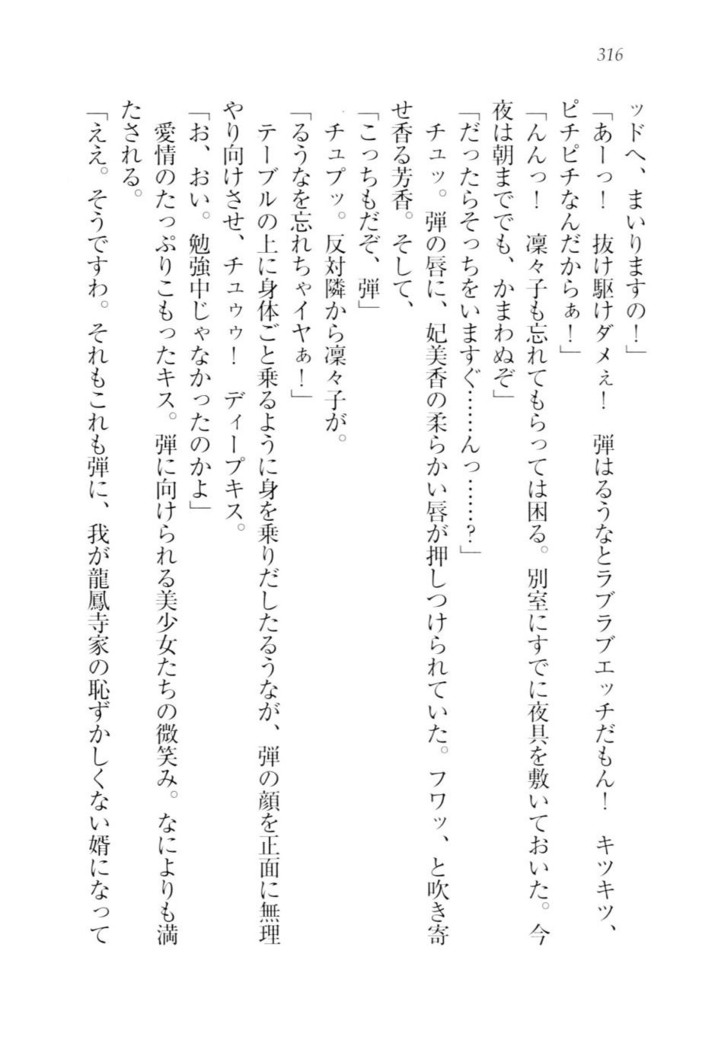 316
ッドへ、まいりますの！」
「あーっ！　抜け駆けダメぇ！　弾はるうなとラブラブエッチだもん！　キツキツ、
ピチピチなんだからぁ！」
「んんっ！　凜々子も忘れてもらっては困る。別室にすでに夜具を敷いておいた。今
夜は朝まででも、かまわぬぞ」
「だったらそっちをいますぐ……んっ……？」
チュッ。弾の唇に、妃美香の柔らかい唇が押しつけられていた。フワッ、と吹き寄
せ香る芳香。そして、
「こっちもだぞ、弾」
チュプッ。反対隣から凜々子が。
「るうなを忘れちゃイヤぁ！」
テーブルの上に身体ごと乗るように身を乗りだしたるうなが、弾の顔を正面に無理
やり向けさせ、チュゥゥ！　ディープキス。
「お、おい。勉強中じゃなかったのかよ」
愛情のたっぷりこもったキス。弾に向けられる美少女たちの微笑み。なによりも満
たされる。
「ええ。そうですわ。それもこれも弾に、我が龍鳳寺家の恥ずかしくない婿になって